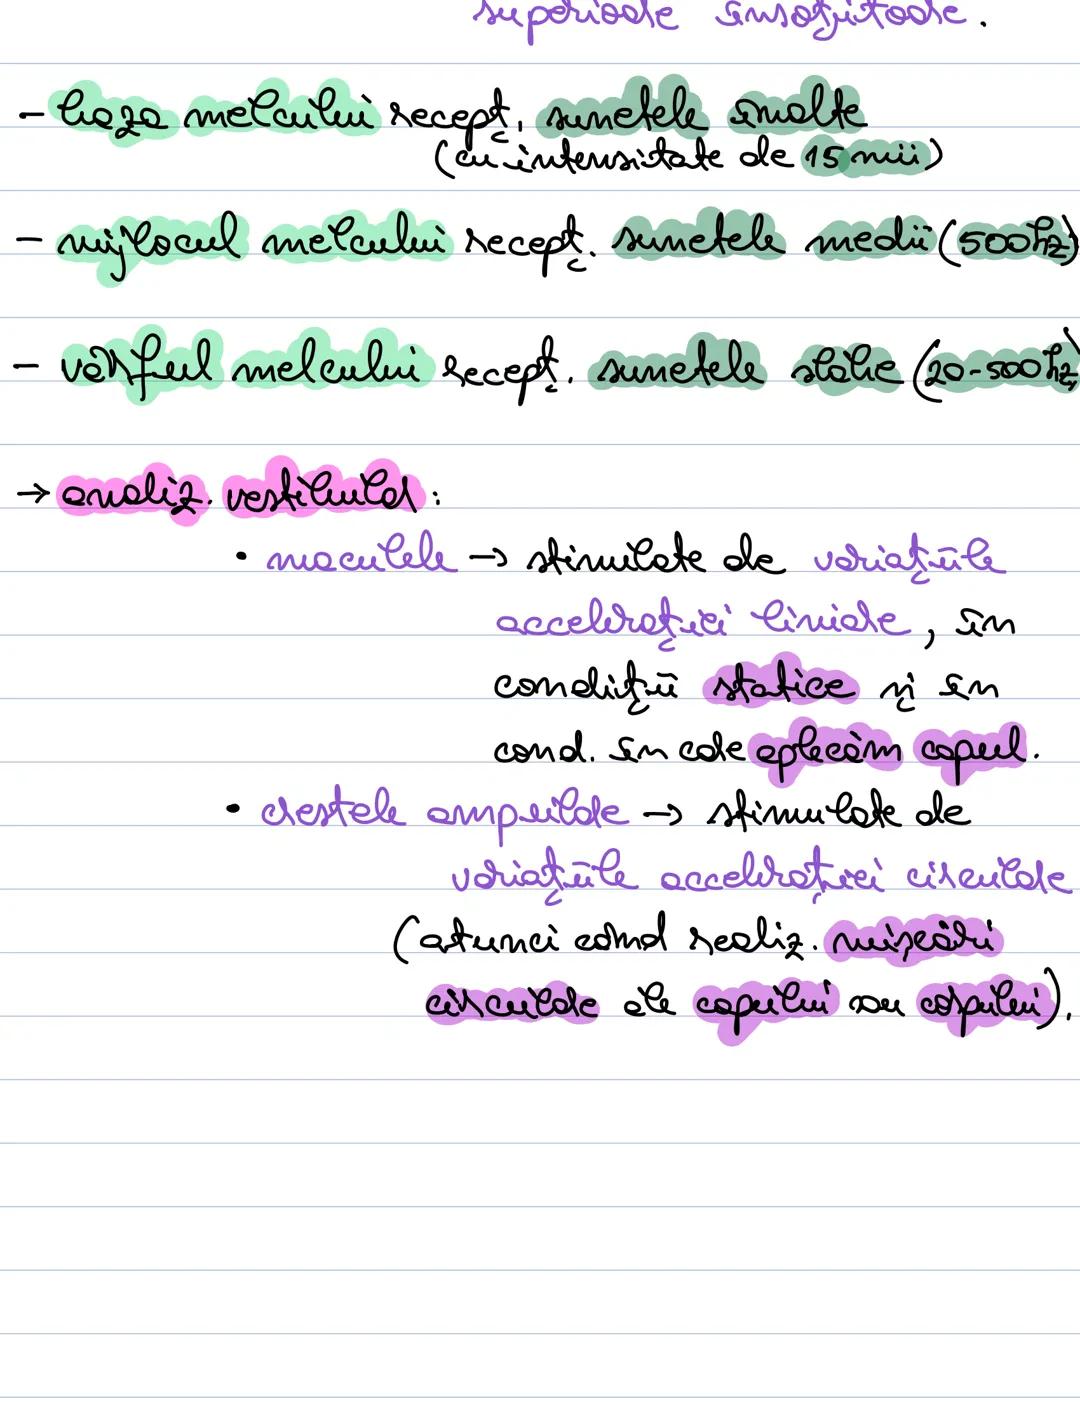 superioare însoțitoare.
- baza melcului recept. sunetele înalte
(cu intensitate de 15 mii)
- mijlocul melcului recept. sunetele medii (500hz)
- vârful melcului recept. sunetele slabe (20-500hz
→ analiz. vestibular:
• maculele → stimulate de variațiile
accelerației liniare, în
condiții statice și în
cond. în care aplecăm capul.
• crestele ampulare → stimulate de
variațiile accelerației circulare
(atunci când realiz. mișcări
circulare ale capului sau corpului).